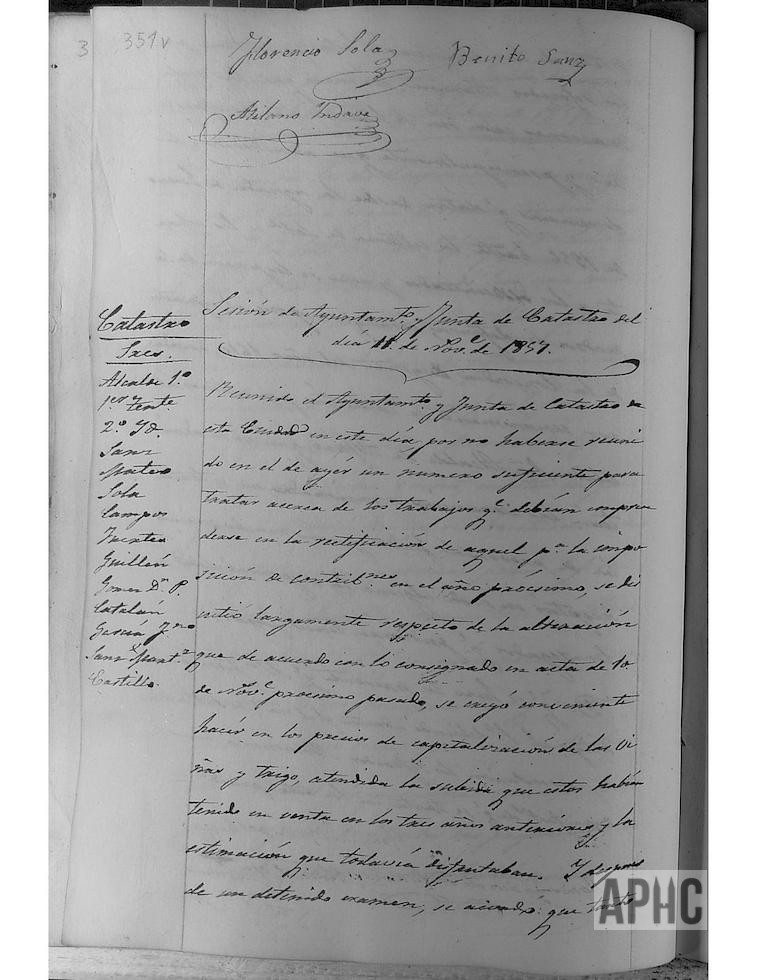 3 351v
Florencio Sola Benito Sanz
Atilano Yndave
Catastro
Sres.
Alcalde 1º
1er Tente
2º Id.
Sanz
Mateo
Sola
Campos
Fuertes
Guillén
Gomez Dn P.
Catalán
García Ygno
Sanz Mart.z
Castillo.
Sesión de Ayuntamto y Junta de Catastro del
día 11 de Nove de 1857.
Reunido el Ayuntamto y Junta de Catastro de
esta Ciudad en este día, por no haberse reuni
do en el de ayér un numero suficiente para
tratar acerca de los trabajos qe debían empren
derse en la rectificación de aquel pa la impo
sición de contribnes en el año procsimo, se dis
cutió largamente respeto de la alteración
que de acuerdo con lo consignado en acta de 10
de Nove procsimo pasado, se creyó conveniente
hacér en los precios de capitalización de las Vi
ñas y trigo, atendida la subida que estos habían
tenido en venta en los tres años anteriores y la
estimación que todavía disfrutaban. Y despues
de un detenido examen, se acordó: que tanto
APHC